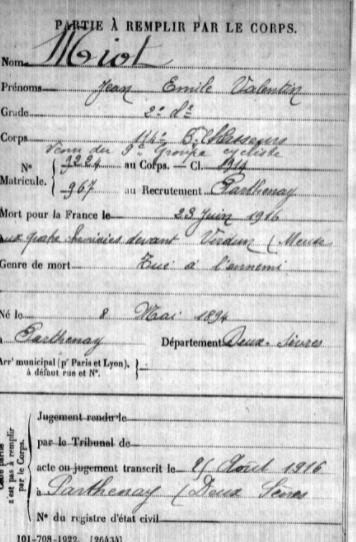 PARTIE À REMPLIR PAR LE CORPS.
Nom Miot
Prénoms Jean Emile Valentin
Grade 2e Cl
Corps 114e B. Chasseurs
Venu du 9e Groupe cycliste
N° 9224 au Corps. — Cl. 1914
Matricule. 967 au Recrutement Parthenay
Mort pour la France le 23 Juin 1916
aux quatre devant Verdun (Meuse
Genre de mort Tué à l'ennemi
Né le 8 Mai 1894
à Parthenay Département Deux-Sèvres
Arrt municipal (pr Paris et Lyon),
à défaut rue et N°.
Cette partie
n'est pas à remplir
par le Corps.
Jugement rendu le
par le Tribunal de
acte ou jugement transcrit le Août 1916
à Parthenay (Deux Sèvres
N° du registre d'état civil
101-708-1922. [26434]